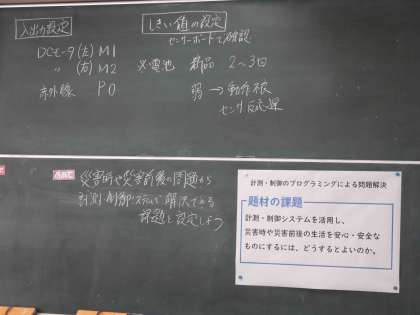 入出力設定
DCモータ(左) M1
〃 (右) M2
赤外線 P0
しきい値の設定
センサーボードで確認
※電池 新品 2〜3日
弱 → 動作不良
センサ反応
めあて
災害時や災害前後の問題から
計測・制御システムで解決できる
課題を設定しよう
計測・制御のプログラミングによる問題解決
題材の課題
計測・制御システムを活用し、
災害時や災害前後の生活を安心・安全な
ものにするには、どうするとよいのか。